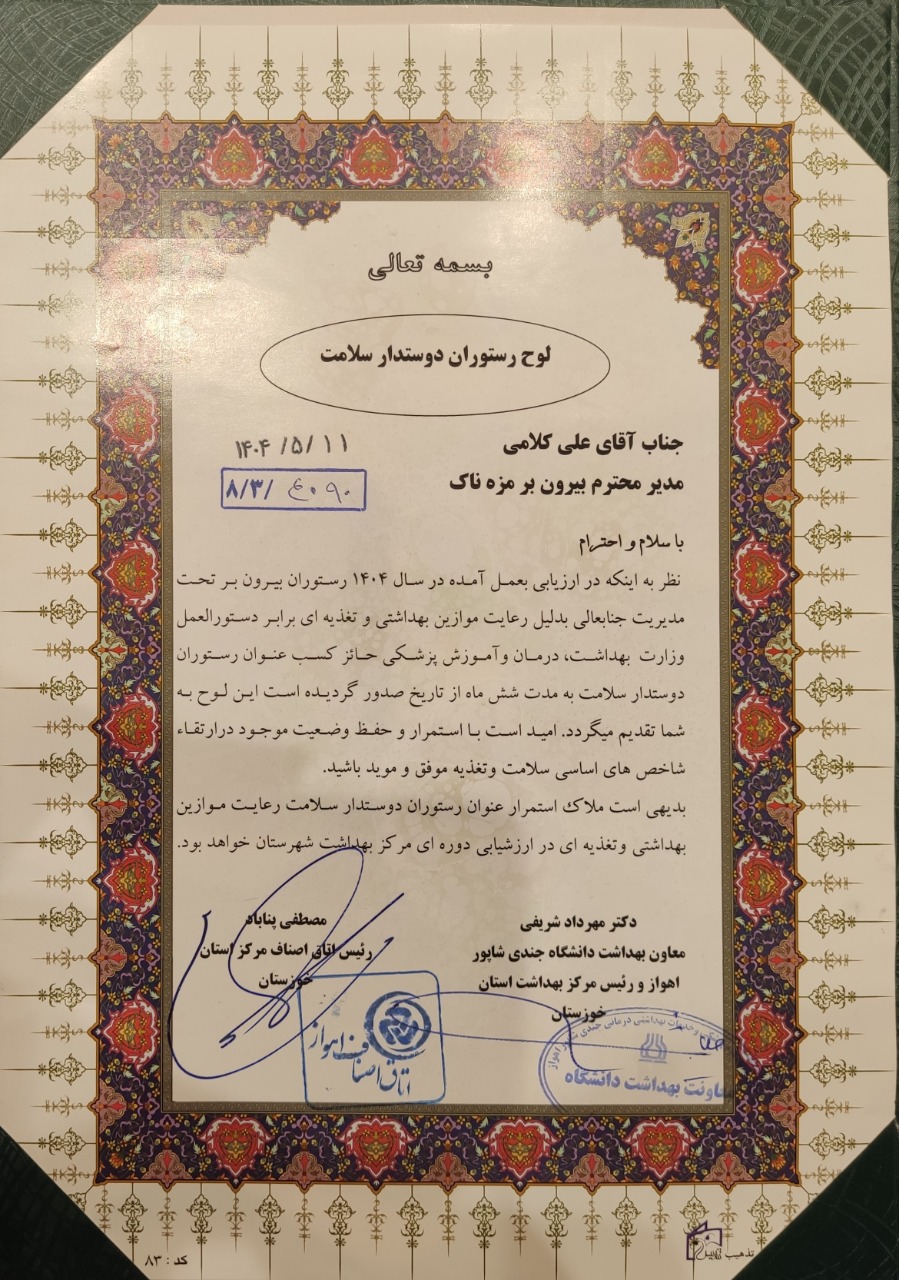 بسمه تعالی
لوح رستوران دوستدار سلامت
جناب آقای علی کلامی
۱۴۰۴/۵/۱۱
مدیر محترم بیرون بر مزه ناک
۸/۳/۴۰۹۰
با سلام و احترام
نظر به اینکه در ارزیابی بعمل آمده در سال ۱۴۰۴ رستوران بیرون بر تحت
مدیریت جنابعالی بدلیل رعایت موازین بهداشتی و تغذیه ای برابر دستورالعمل
وزارت بهداشت، درمان وآموزش پزشکی حائز کسب عنوان رستوران
دوستدار سلامت به مدت شش ماه از تاریخ صدور گردیده است این لوح به
شما تقدیم میگردد. امید است با استمرار و حفظ وضعیت موجود درارتقاء
شاخص های اساسی سلامت وتغذیه موفق و موید باشید.
بدیهی است ملاک استمرار عنوان رستوران دوستدار سلامت رعایت موازین
بهداشتی وتغذیه ای در ارزشیابی دوره ای مرکز بهداشت شهرستان خواهد بود.
دکتر مهرداد شریفی
معاون بهداشت دانشگاه جندی شاپور
اهواز و رئیس مرکز بهداشت استان
خوزستان
مصطفی پناباد
رئیس اتاق اصناف مرکز استان
خوزستان
اتاق اصناف اهواز
خدمات بهداشتی درمانی جندی اهواز
معاونت بهداشت دانشگاه
تذهیب
کد : ۸۳